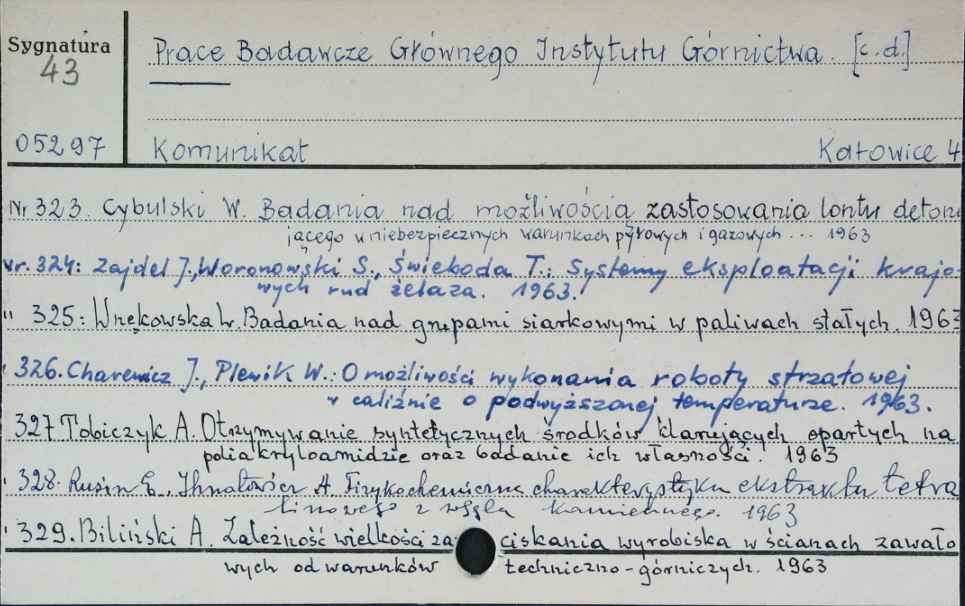 Sygnatura
43
Prace Badawcze Głównego Instytutu Górnictwa. [c.d.]
05297 Komunikat Katowice 4
Nr 323. Cybulski W. Badania nad możliwością zastosowania lontu detonu
jącego w niebezpiecznych warunkach pyłowych i gazowych ... 1963
nr. 324: Zajdel J., Woronowski S., Świeboda T.: Systemy eksploatacji krajo-
wych rud żelaza. 1963.
" 325: Wnękowska W. Badania nad grupami siarkowymi w paliwach stałych. 1963
" 326. Charewicz J., Plewik W.: O możliwości wykonania roboty strzałowej
w caliźnie o podwyższonej temperaturze. 1963.
327 Tobiczyk A. Otrzymywanie syntetycznych środków klarujących opartych na
poliakryloamidzie oraz badanie ich własności. 1963
" 328. Rusin E., Ihnatowicz A. Fizykochemiczna charakterystyka ekstraktu tetra
linowego z węgla kamiennego. 1963
" 329. Biliński A. Zależność wielkości zaciskania wyrobiska w ścianach zawało
wych od warunków techniczno-górniczych. 1963